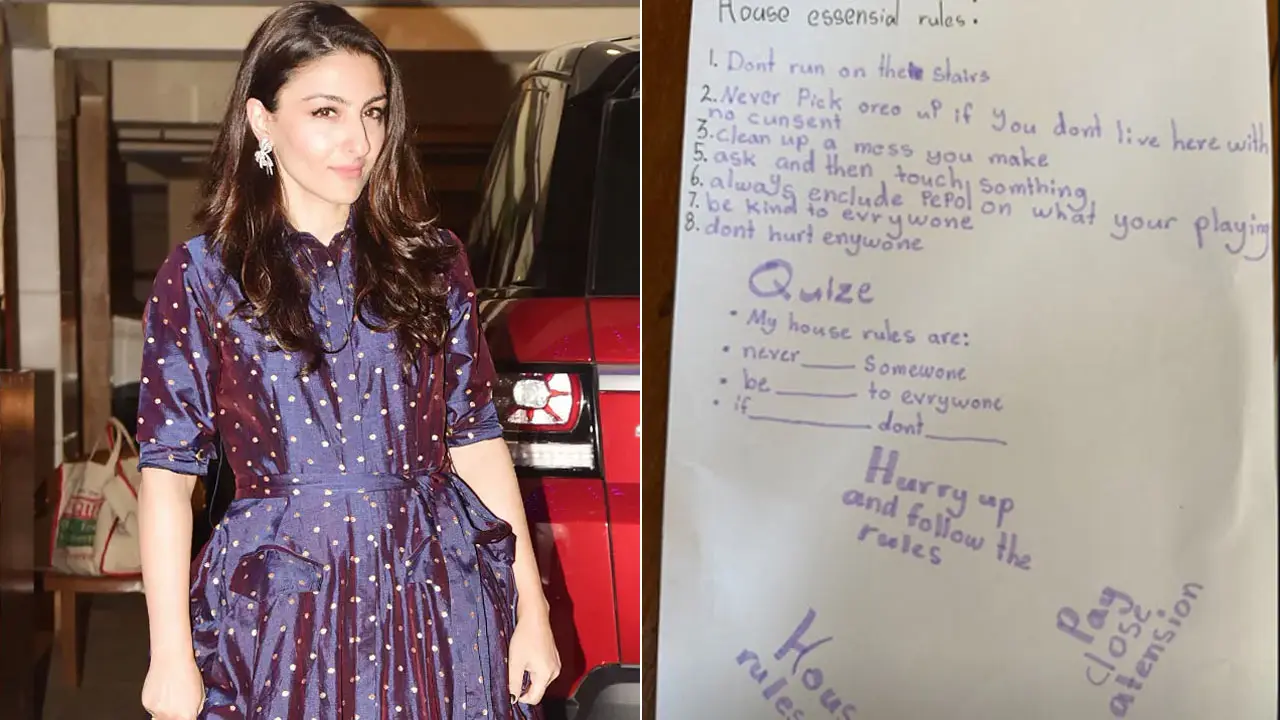 House essensial rules:
1. Dont run on the stairs
2. Never Pick oreo up if you dont live here with
no cunsent
3. clean up a mess you make
5. ask and then touch somthing
6. always enclude PePol on what your playing
7. be kind to evrywone
8. dont hurt enywone
Quize
• My house rules are:
• never____ Somewone
• be ______ to evrywone
• if_________ dont______
Hurry up
and follow the
rules
Pay
close
atension
Hous
rules